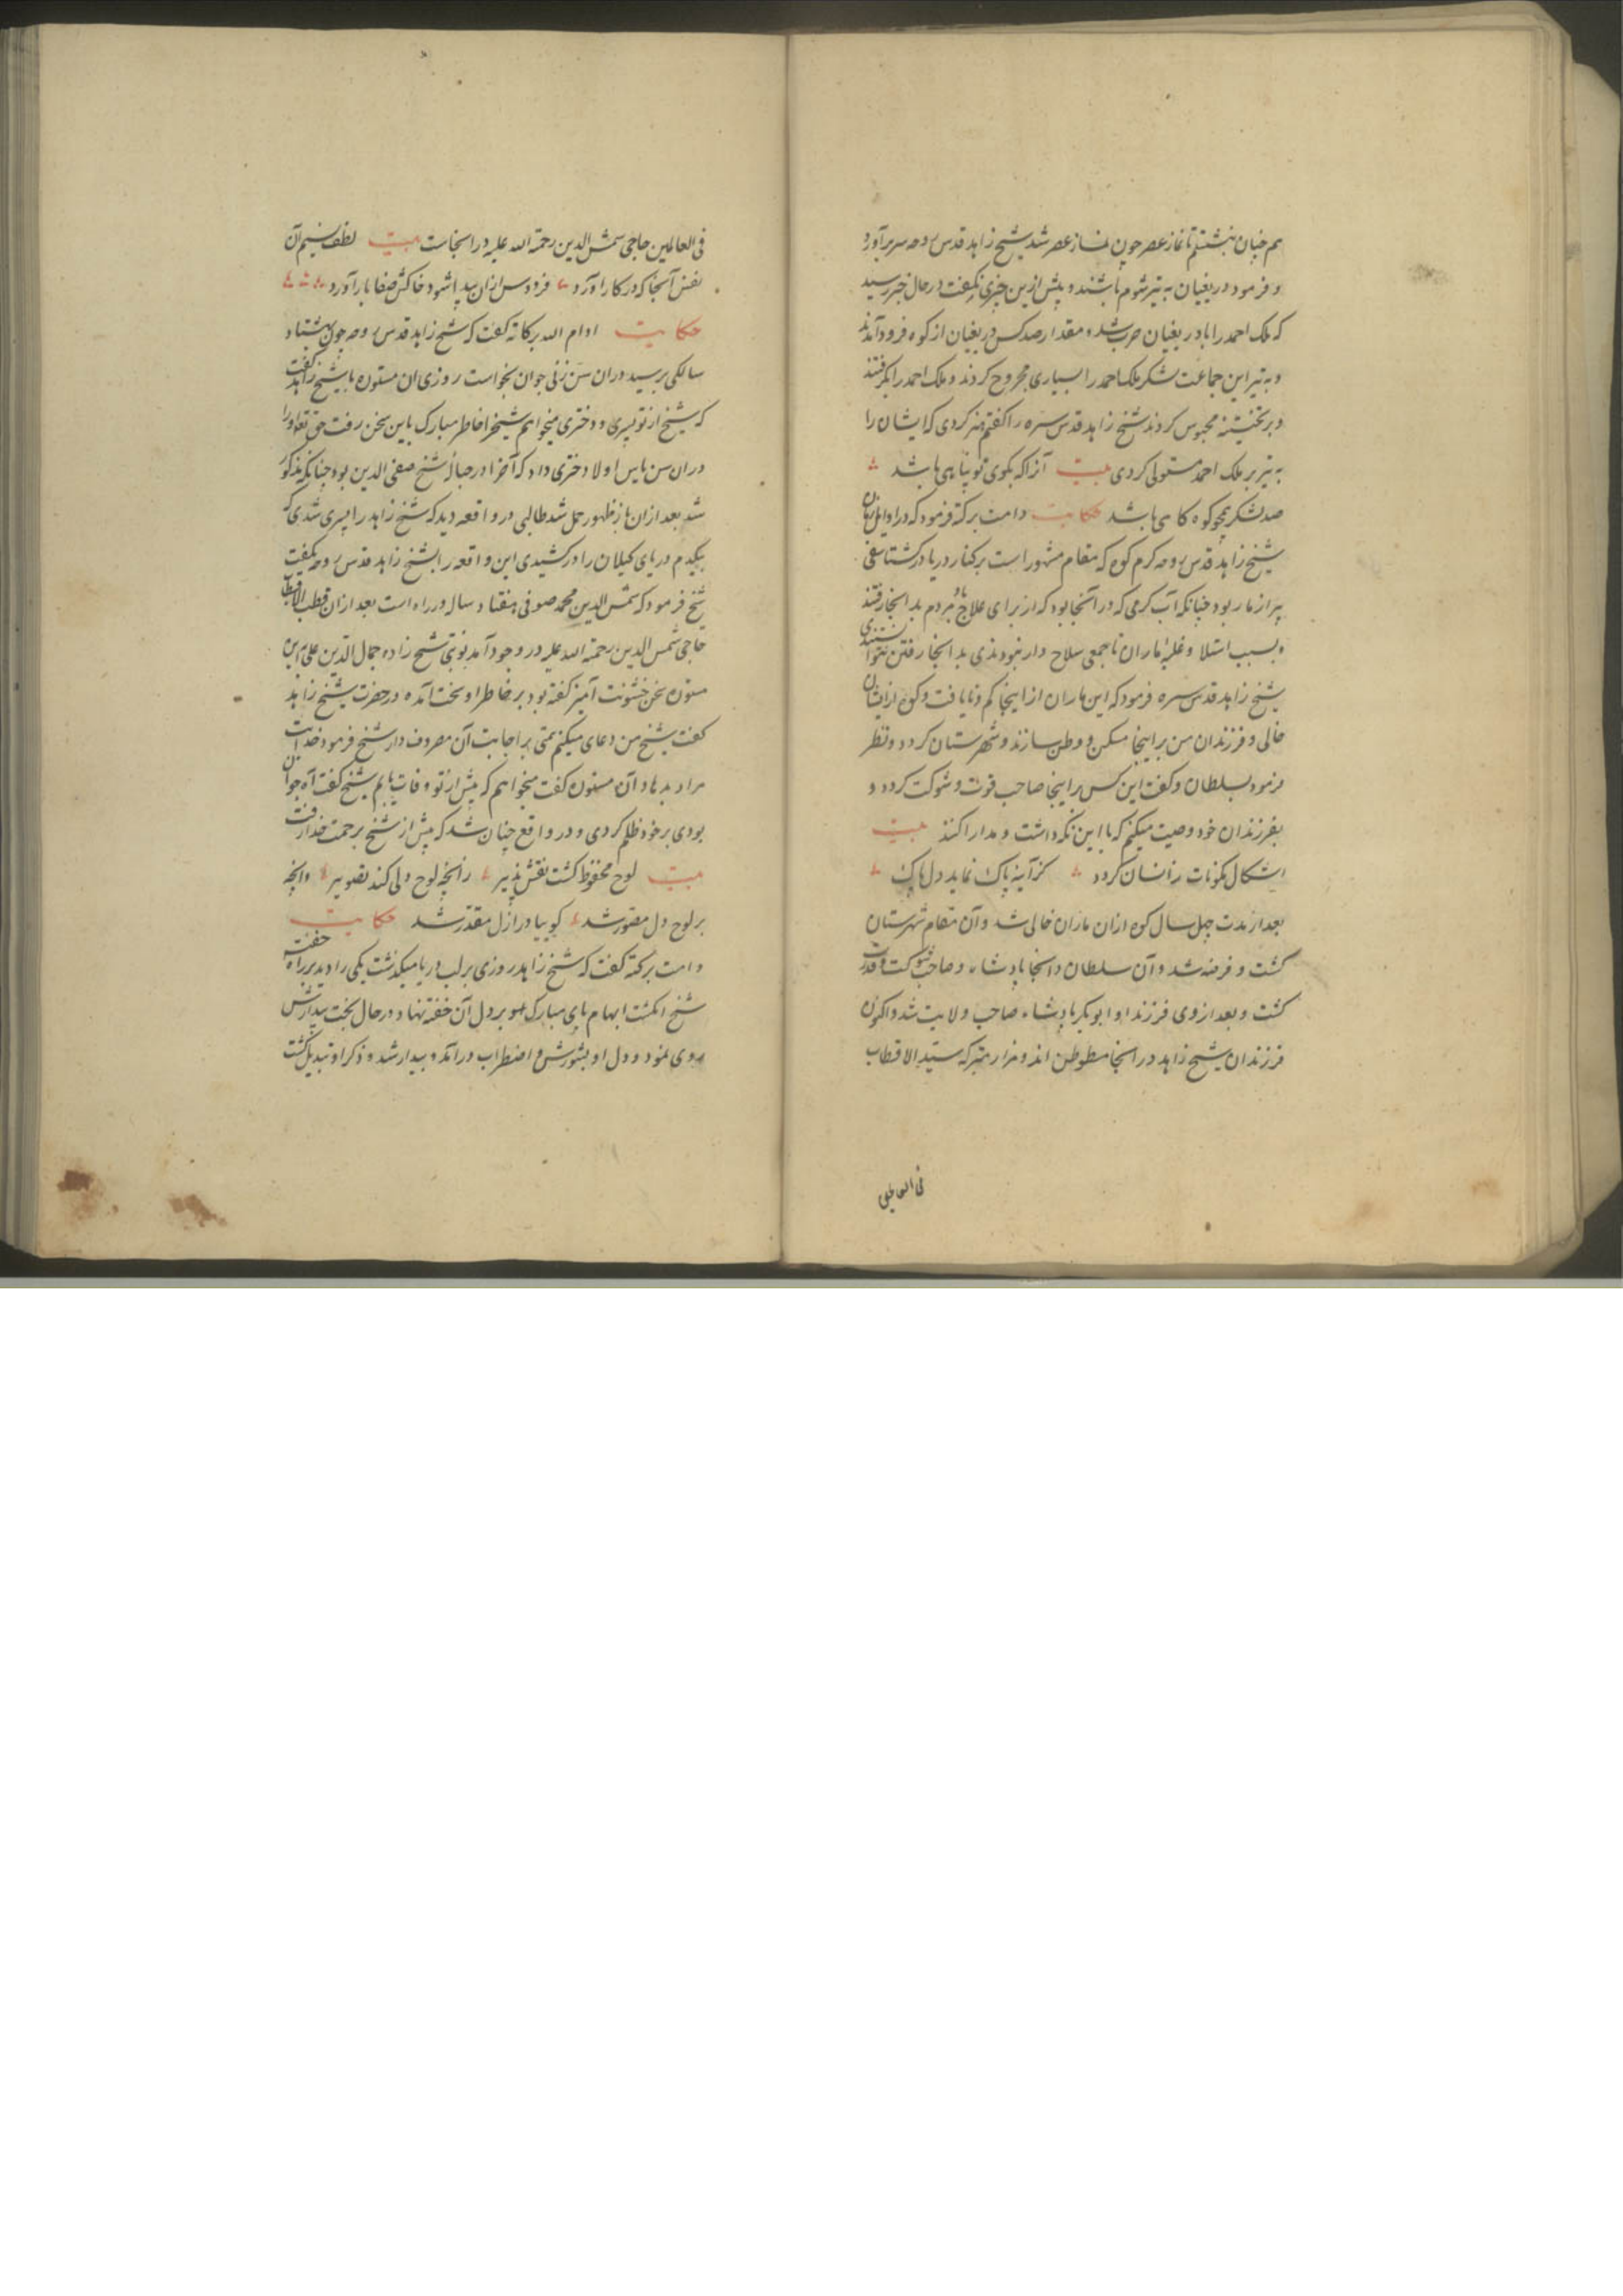 هم چنان بنشستم تا نماز عصر چون نماز عصر شد شیخ زاهد قدس روحه سر برآورد
و فرمود در بغیان به تیر شوم باشند و پیش ازین چیزی نگفت در حال خبر رسید
که ملک احمد را با در بغیان حرب شد و مقدار صد کس در بغیان از کوه فرود آمدند
و به تیر این جماعت لشکر ملک احمد را بسیاری مجروح کردند و ملک احمد را بگرفتند
و بر تختیته محبوس کردند شیخ زاهد قدس سره را گفتم هنر کردی که ایشان را
به تیر بر ملک احمد مستولی کردی بیت آنرا که بکوی تو پناهی باشد
صد لشکر همچو کوه کاهی باشد حکایت دامت برکته فرمود که در اوایل زمان
شیخ زاهد قدس روحه کرم کوه که مقام مشهور است بر کنار دریا در کشتاسفی
پر از مار بود چنانکه آب گرمی که در آنجا بود که از برای علاج مردم بدانجا رفتند
و بسبب استلا و غلبه ماران تا جمعی سلاح دار نبودندی بدانجا رفتن نتوانستندی
شیخ زاهد قدس سره فرمود که این ماران از اینجا کم و نایافت و کوه از ایشان
خالی و فرزندان من بر اینجا مسکن و وطن سازند و شهرستان کردد و نظر
فرمود بسلطان و گفت این کس بر اینجا صاحب قوت و شوکت کردد و
بفرزندان خود وصیت میکنم که با این نگه داشت و مدارا کنند بیت
اشکال مکونات زانسان کردد کز آینه پاک نماید دل پاک
بعد از مدت چهل سال کوه ازان ماران خالی شد و آن مقام شهرستان
گشت و فرضه شد و آن سلطان در آنجا پادشاه و صاحب شوکت و قدرت
گشت و بعد از وی فرزند او ابوبکر پادشاه صاحب ولایت شد و اکنون
فرزندان شیخ زاهد در آنجا متوطن اند و مزار متبرکه سید الاقطاب
فی العالمین
فی العالمین حاجی شمس الدین رحمة الله علیه در آنجاست بیت لطف نسیم آن
نفس آنجا که در کار آورد فردوس ازان پیدا شود خاکش صفا بار آورد
حکایت ادام الله برکاته گفت که شیخ زاهد قدس روحه چون بهشتاد
سالگی برسید دران سن زنی جوان بخواست روزی ان مستوره با شیخ زاهد گفت
که شیخ از تو پسری و دختری میخواهم شیخ را خاطر مبارک باین سخن رفت حق تعالی او را
دران سن یاس اولا دختری داد که آخر در حباله شیخ صفی الدین بود چنانکه مذکور
شد بعد ازان باز ظهور حمل شد طالبی در واقعه دید که شیخ زاهد را پسری شدی که
بیکدم دریای کیلان را در کشیدی این واقعه را بشیخ زاهد قدس روحه بگفت
شیخ فرمود که شمس الدین محمد صوفی هفتاد ساله در راه است بعد ازان قطب الاقطاب
حاجی شمس الدین رحمة الله علیه در وجود آمد نوبتی شیخ زاده جمال الدین علی باین
مستوره سخن خشونت آمیز گفته بود بر خاطر او سخت آمده در حضرت شیخ زاهد
گفت شیخ من دعای میکنم همتی بر اجابت آن مصروف دار شیخ فرمود خدایت
مراد بدهاد آن مستوره گفت میخواهم که پیش از تو وفات یابم شیخ گفت آه جوان
بودی بر خود ظلم کردی و در واقع چنان شد که پیش از شیخ برحمت خدا رفت
بیت لوح محفوظ گشت نقش پذیر زانچه لوح دلی کند تصویر وانچه
بر لوح دل مصور شد گوییا در ازل مقدر شد حکایت
دامت برکته گفت که شیخ زاهد روزی بر لب دریا میگذشت یکی را دید بر راه خفته
شیخ انگشت ابهام پای مبارک خود بر دل آن خفته نهاد و در حال بخت بیدارش
روی نمود و دل او بشورش و اضطراب درآمد و بیدار شد و ذکر او تبدیل گشت